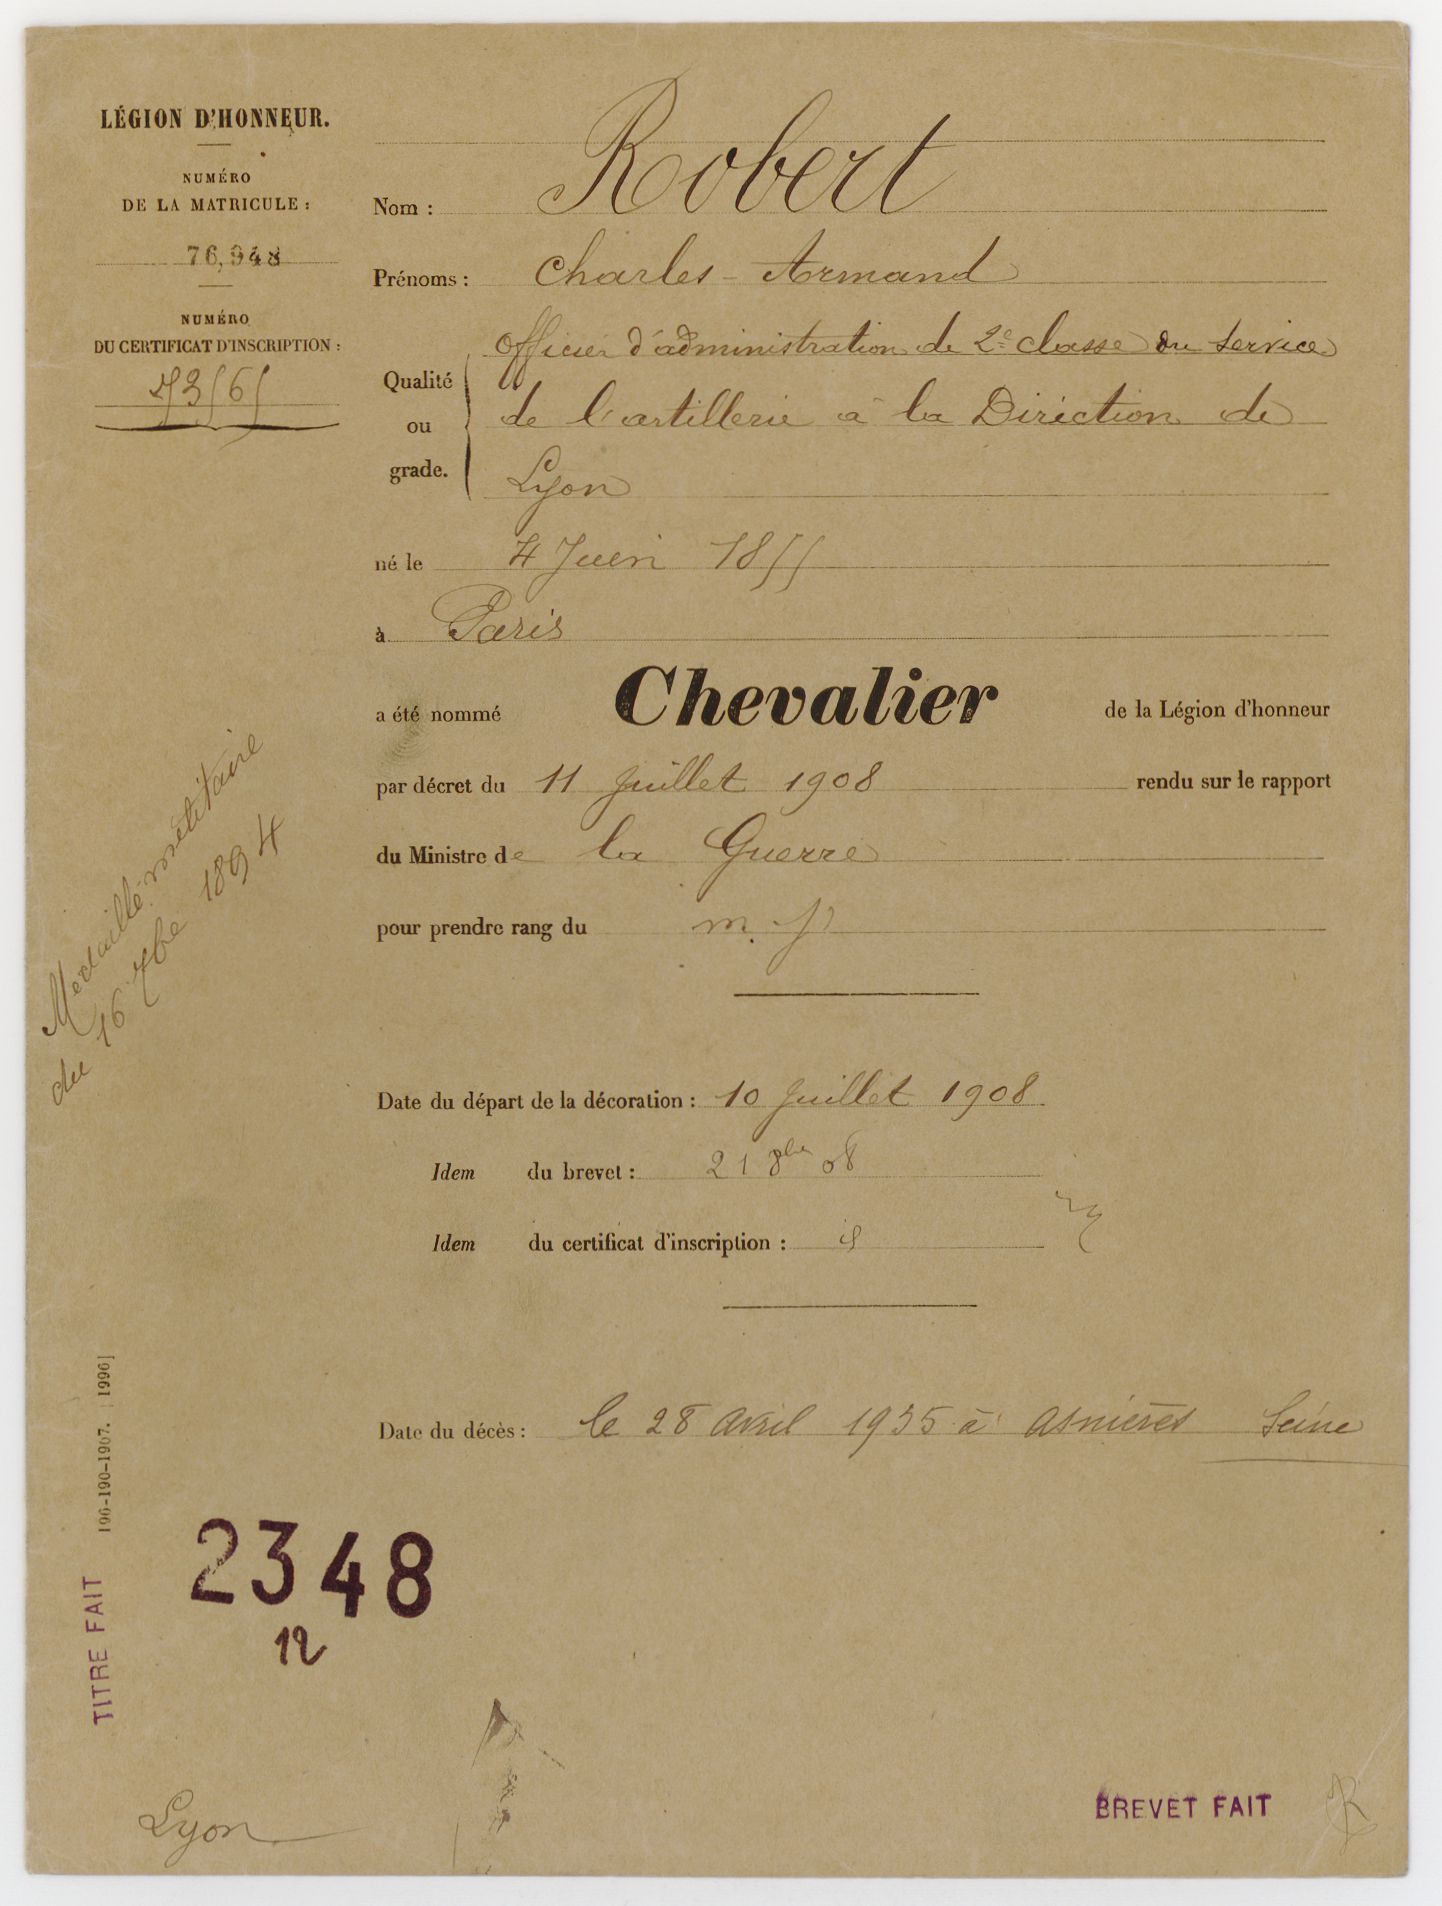 LÉGION D'HONNEUR.
NUMÉRO
DE LA MATRICULE :
76,948
NUMÉRO
DU CERTIFICAT D'INSCRIPTION :
73565
Nom : Robert
Prénoms : Charles-Armand
Qualité ou grade. Officier d'administration de 2e classe du Service
de l'artillerie à la Direction de
Lyon
né le 4 Juin 1855
à Paris
a été nommé Chevalier de la Légion d'honneur
par décret du 11 Juillet 1908 rendu sur le rapport
du Ministre de la Guerre
pour prendre rang du m. j
Médaillé militaire
du 16 7bre 1894
Date du départ de la décoration : 10 Juillet 1908
Idem du brevet : 21 8bre 08
Idem du certificat d'inscription :
Date du décès : le 28 avril 1935 à Asnières Seine
196-190-1907. [1996]
TITRE FAIT
2348
12
Lyon
BREVET FAIT